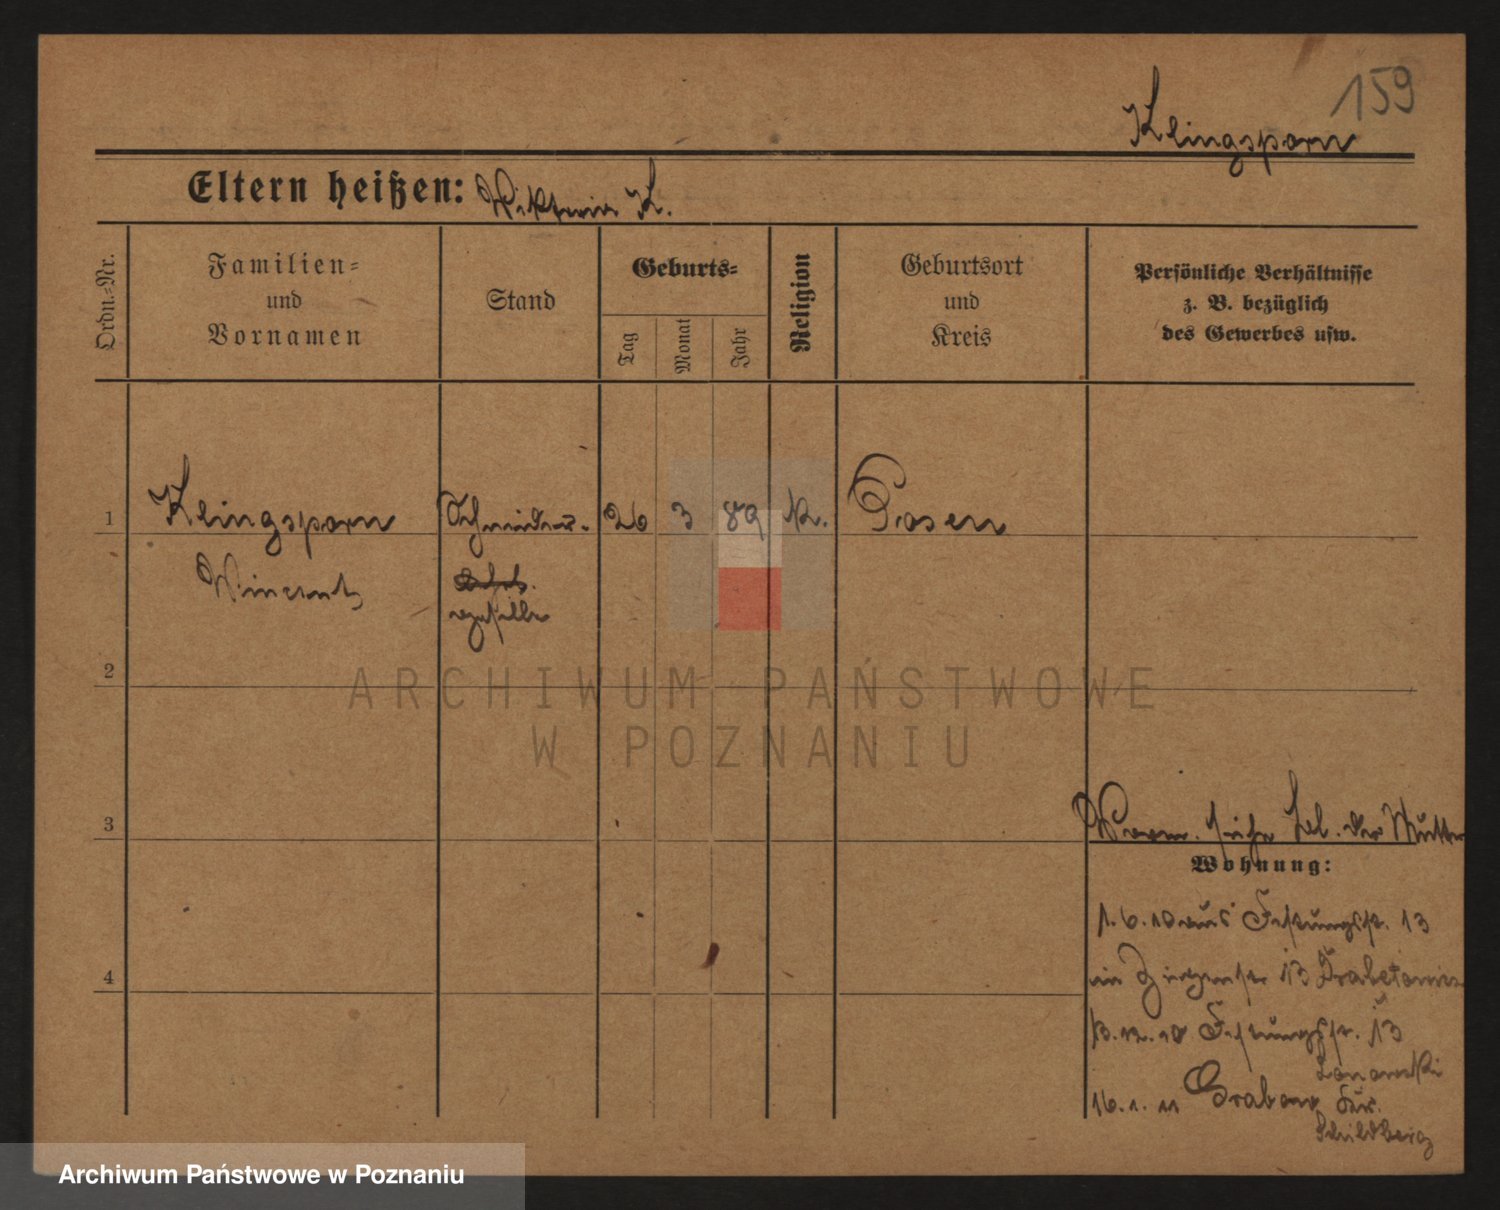 159
Klingsporn
Eltern heißen: Wiktoria K.
Ordn.=Nr.
Familien=
und
Vornamen
Stand
Geburts=
Tag
Monat
Jahr
Religion
Geburtsort
und
Kreis
Persönliche Verhältnisse
z. B. bezüglich
des Gewerbes usw.
1 Klingsporn Schneider. 26 3 89 K. Posen
Vincent
gehilfe
2
ARCHIWUM PAŃSTWOWE
W POZNANIU
3
siehe der Mutter
Wohnung:
1. 6. 10 aus Festungsstr. 13
in 13
4
13. 12. 10 Festungsstr. 13
16. 1. 11 Grabow
Schildberg
Archiwum Państwowe w Poznaniu